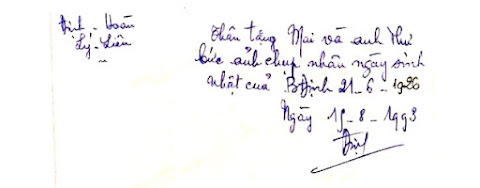 Định - Hoàn
Lý - Liên
Thân tặng Mai và anh Thư
bức ảnh chụp nhân ngày sinh
nhật của B Định 21-6-1926
Ngày 15-8-1993
Định